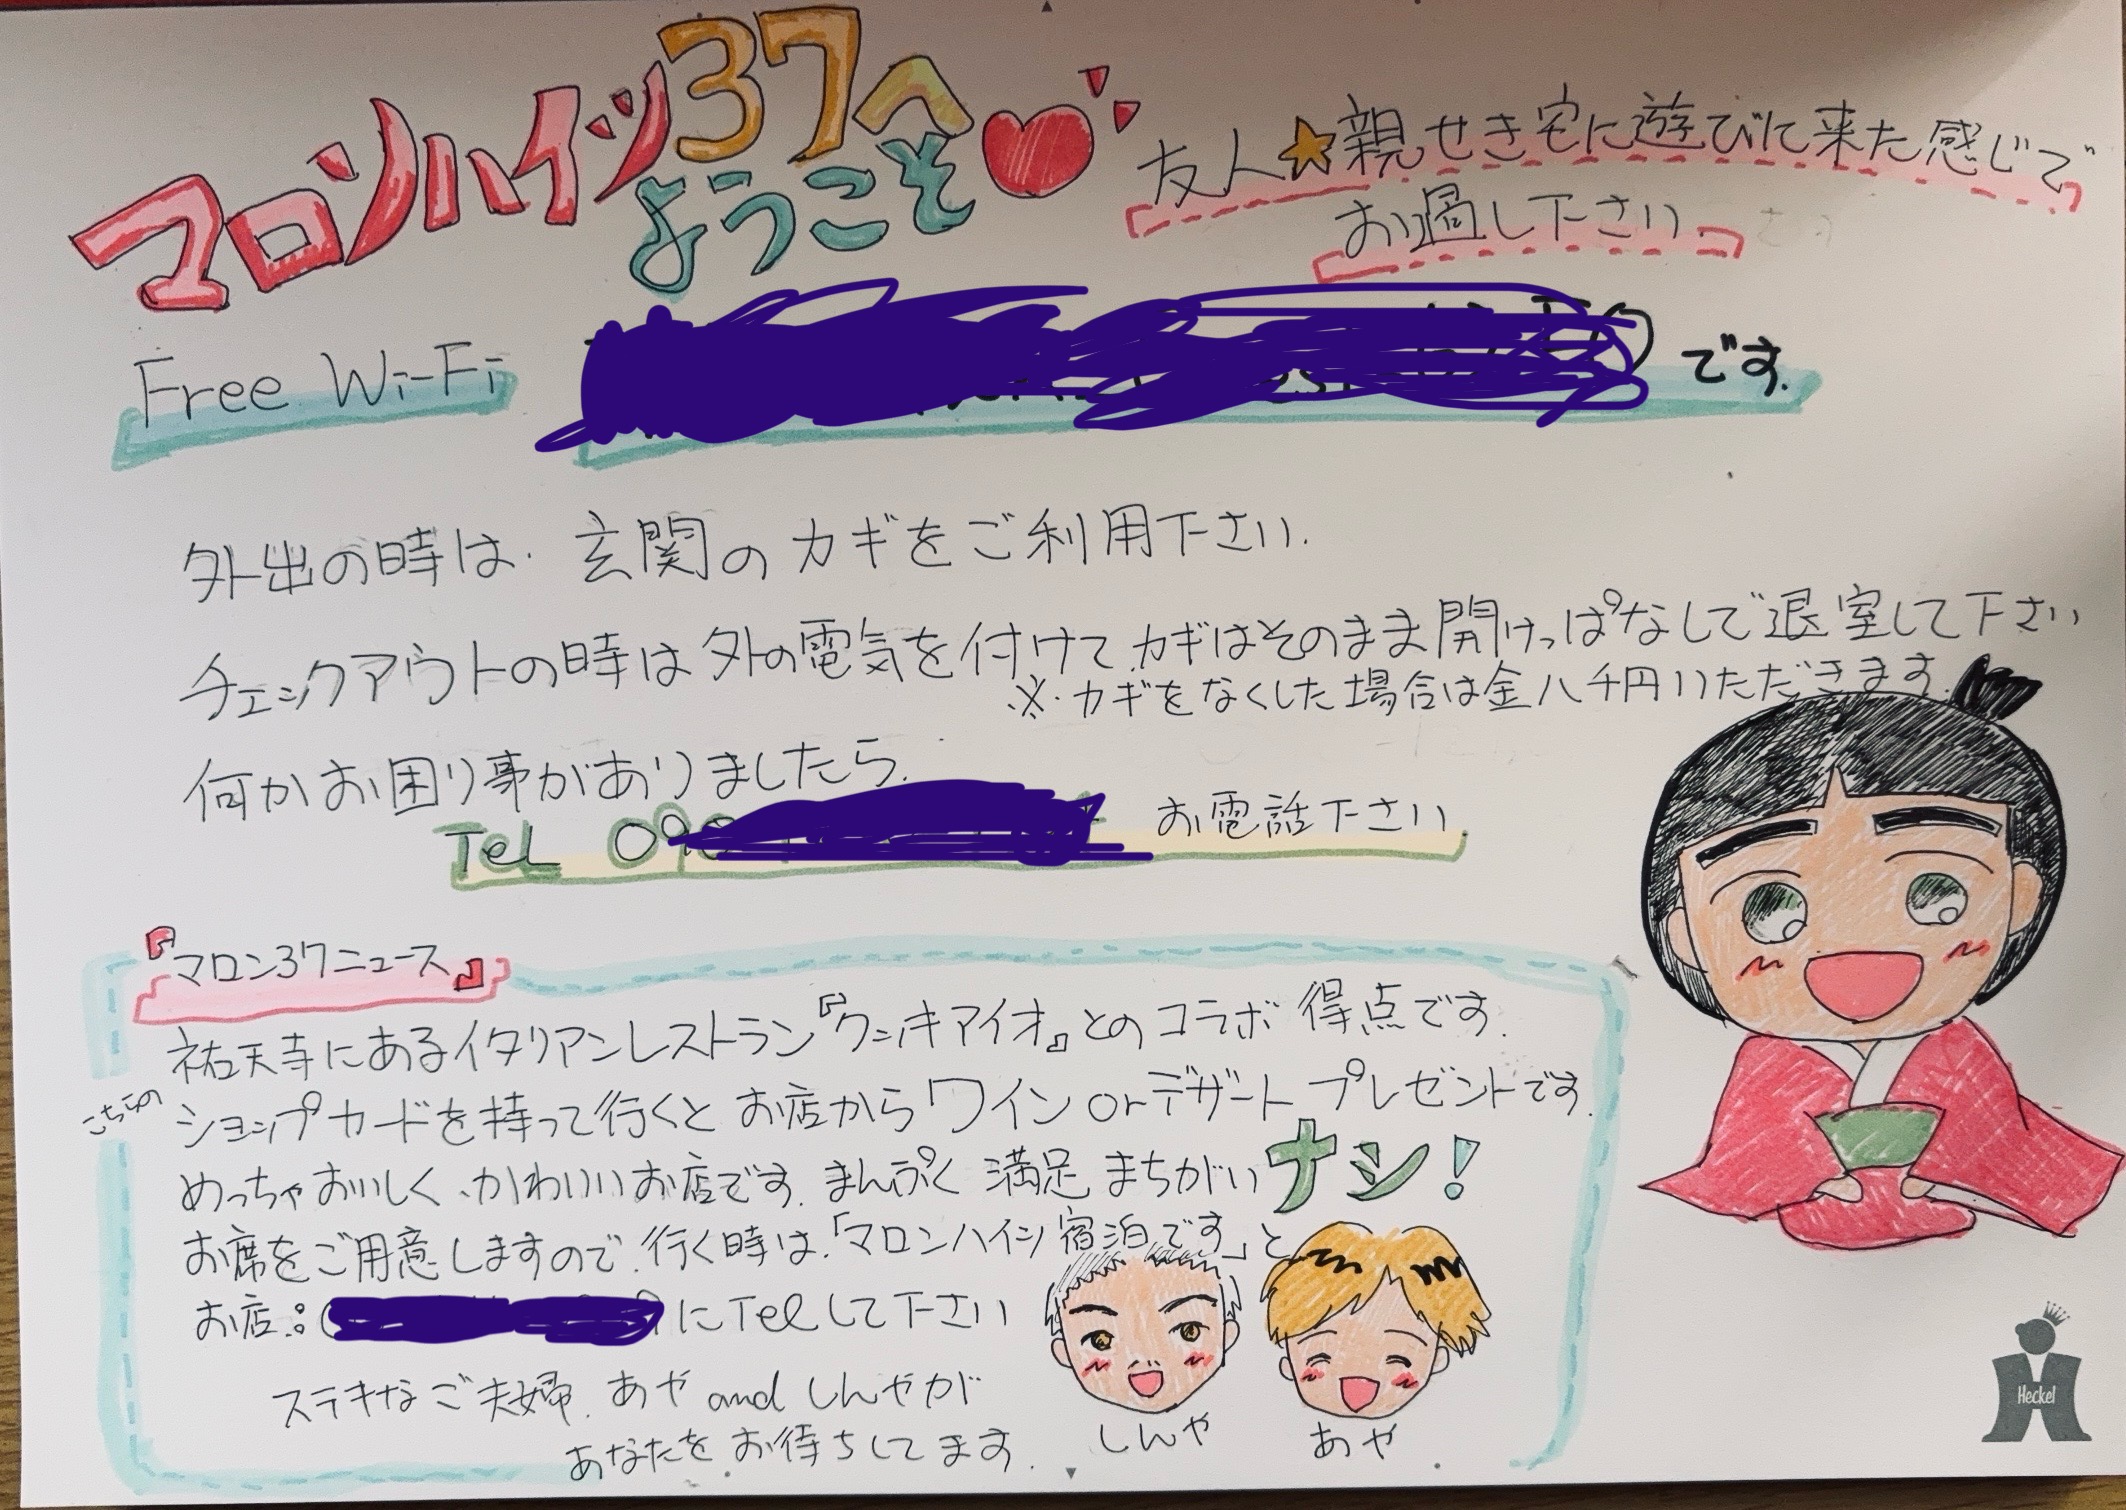 マロンハイツ37へ
ようこそ
友人☆親せき宅に遊びに来た感じで
お過し下さい
Free Wi-Fi です.
外出の時は. 玄関のカギをご利用下さい.
チェックアウトの時は外の電気を付けて.カギはそのまま開けっぱなしで退室して下さい
※.カギをなくした場合は金八千円いただきます.
何かお困り事がありましたら.
TeL 090 お電話下さい
『マロン37ニュース』
祐天寺にあるイタリアンレストラン『クッキアイオ』とのコラボ得点です.
こちらの
ショップカードを持って行くとお店からワインorデザートプレゼントです.
めっちゃおいしく.かわいいお店です.まんぷく満足まちがいナシ!
お席をご用意しますので.行く時は.「マロンハイツ宿泊です」と
お店: にTelして下さい
ステキなご夫婦.あやandしんやが
あなたをお待ちしてます.
しんや
あや
Heckel